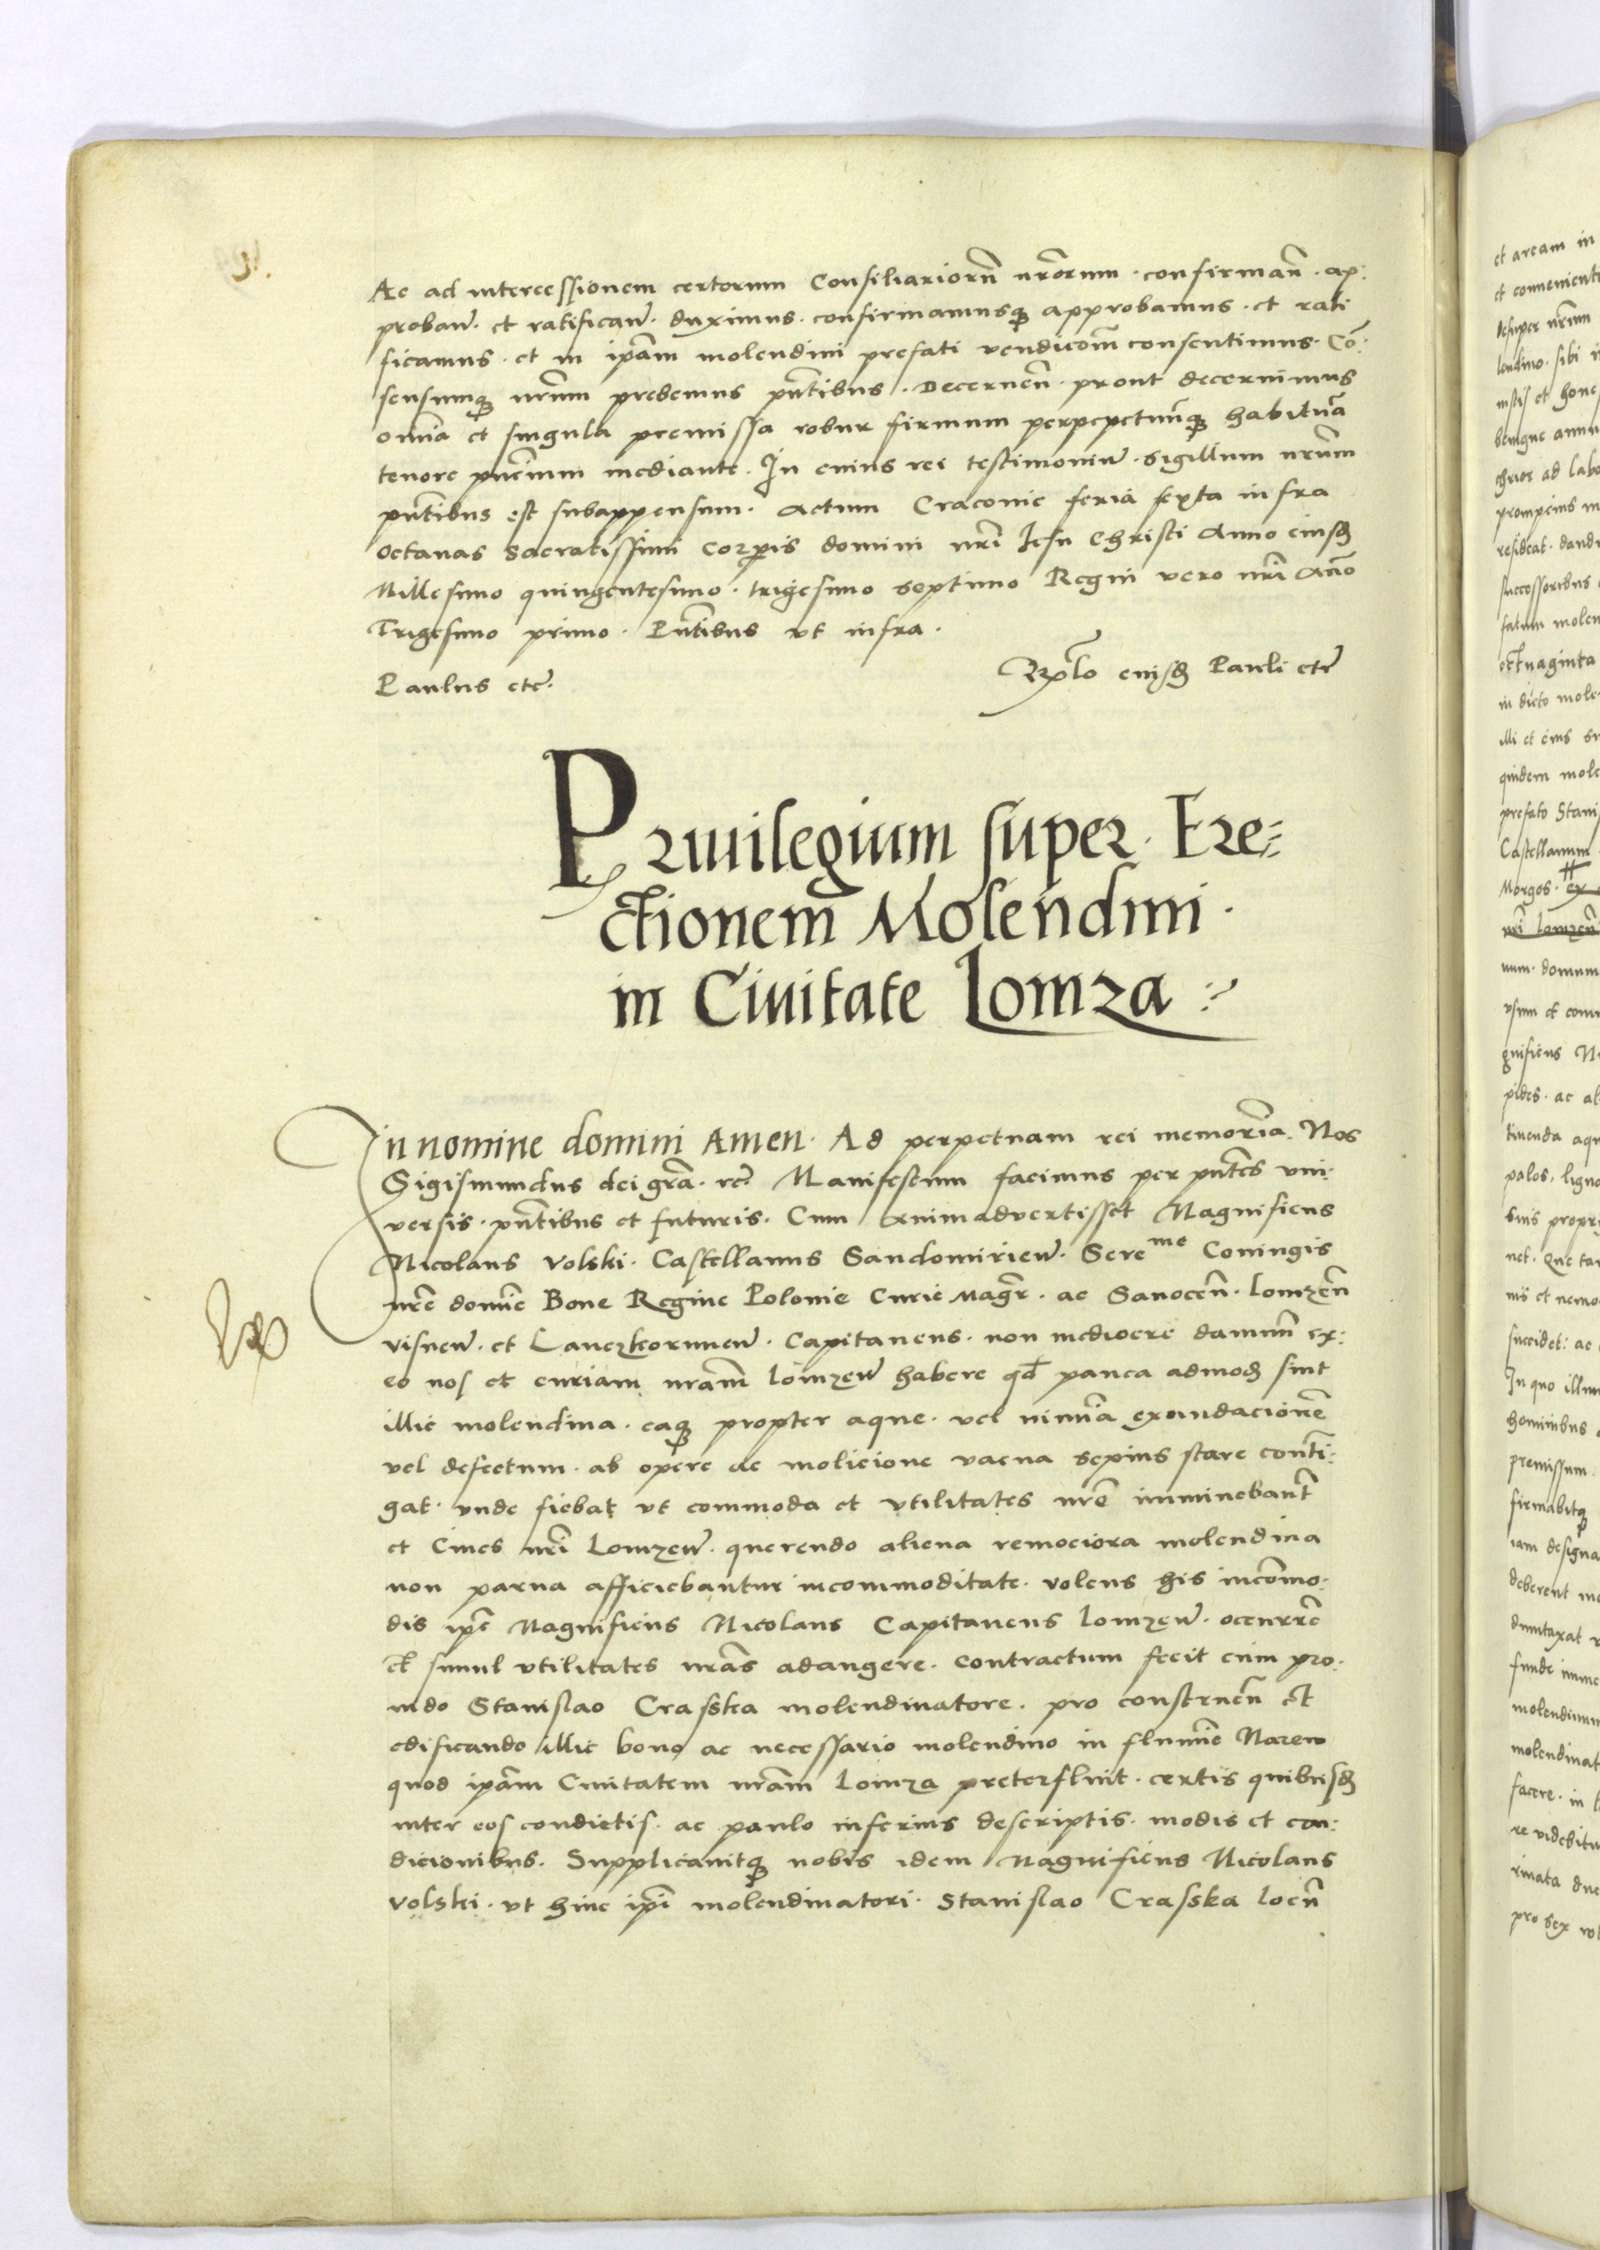 Ac ad intercessionem certorum Consiliariorũ nr̃orum · confirmañ · ap:
probañ · et ratificañ · duximus · confirmamusq₃ approbamus · et rati
ficamus · et in ip̃am molendini prefati vendicom̃ consentimus · Cõ:
sensumq₃ nr̃um prebemus pñtibus · Decerneñ · prout decernimus
omnia et singula premissa robur firmum perpepetuũq₃ habitura
tenore pñcium mediante · In cuius rei testimoniũ · sigillum nr̃um
pñtibus est subappensum · Actum Cracovie feria sexta infra
octauas Sacratissimi Corp̃is domini nr̃i Jesu Christi Anno eiusd̃
Millesimo quingentesimo · trigesimo septimo Regni vero nr̃i Año
Trigesimo primo · Pñtibus vt infra ·
Paulus etc̃.
Rp̃lo eiusd̃ Pauli etc̃
Priuilegium super · Ere:
ctionem Molendini ·
in Ciuitate Lomza
In nomine domini Amen · Ad perpetuam rei memoriã · Nos
Sigismundus dei gr̃a · rc̃. Manifestum facimus per pñtes vni·
versis · pñtibus et futuris · Cum animadvertisset Magnificus
Nicolaus Volski · Castellanus Sandomirieñ · Sereme Coniugis
nr̃e domie Bone Regine Polonie Curie Magr̃ · ac Sanoceñ · Lomzeñ
visneñ · et Lanczkoruneñ · Capitaneus · non mediocre damnũ ex:
eo nos et curiam nr̃am Lomzeñ habere qd̃ pauca admod̃ sint
illic molendina · eaq₃ propter aque · vel nimiã exundacionẽ
vel defectum · ab opere ac molicione vacua sepius stare conti:
gat · vnde fiebat vt commoda et vtilitates nr̃e imminebantr̃
et Ciues nr̃i Lomzeñ · querendo aliena remociora molendina
non parua afficiebantur incommoditate · volens his incom̃o·
dis ip̃e Magnificus Nicolaus Capitaneus Lomzeñ · occurrẽ
et simul vtilitates nr̃as adaugere · contractum fecit cum pro·
uido Stanislao Crasska molendinatore · pro construeñ et
edificando illic bono ac necessario molendino in flumie Narew
quod ip̃am Ciuitatem nr̃am Lomza preterfluit · certis quibusd̃
inter eos condictis · ac paulo inferius descriptis · modis et con:
dicionibus · Supplicauitq₃ nobis idem Magnificus Nicolaus
Volski · vt huic ip̃i molendinatori · Stanislao Crasska locũ